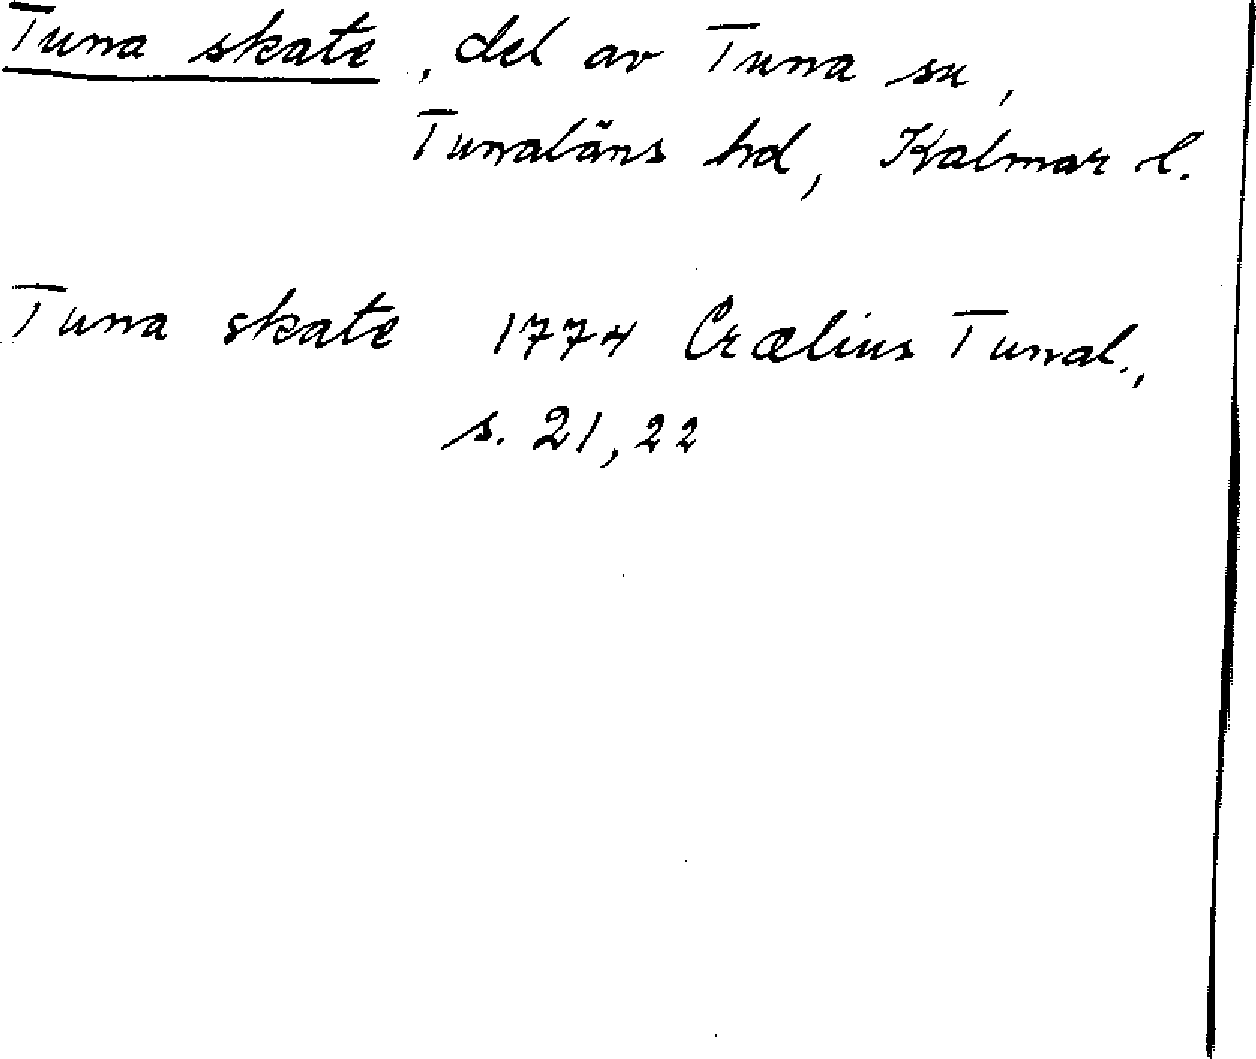 Tuna skate, del av Tuna sn,
Tunaläns hd, Kalmar l.
Tuna skate 1774 Crælius Tunal.,
s. 21, 22